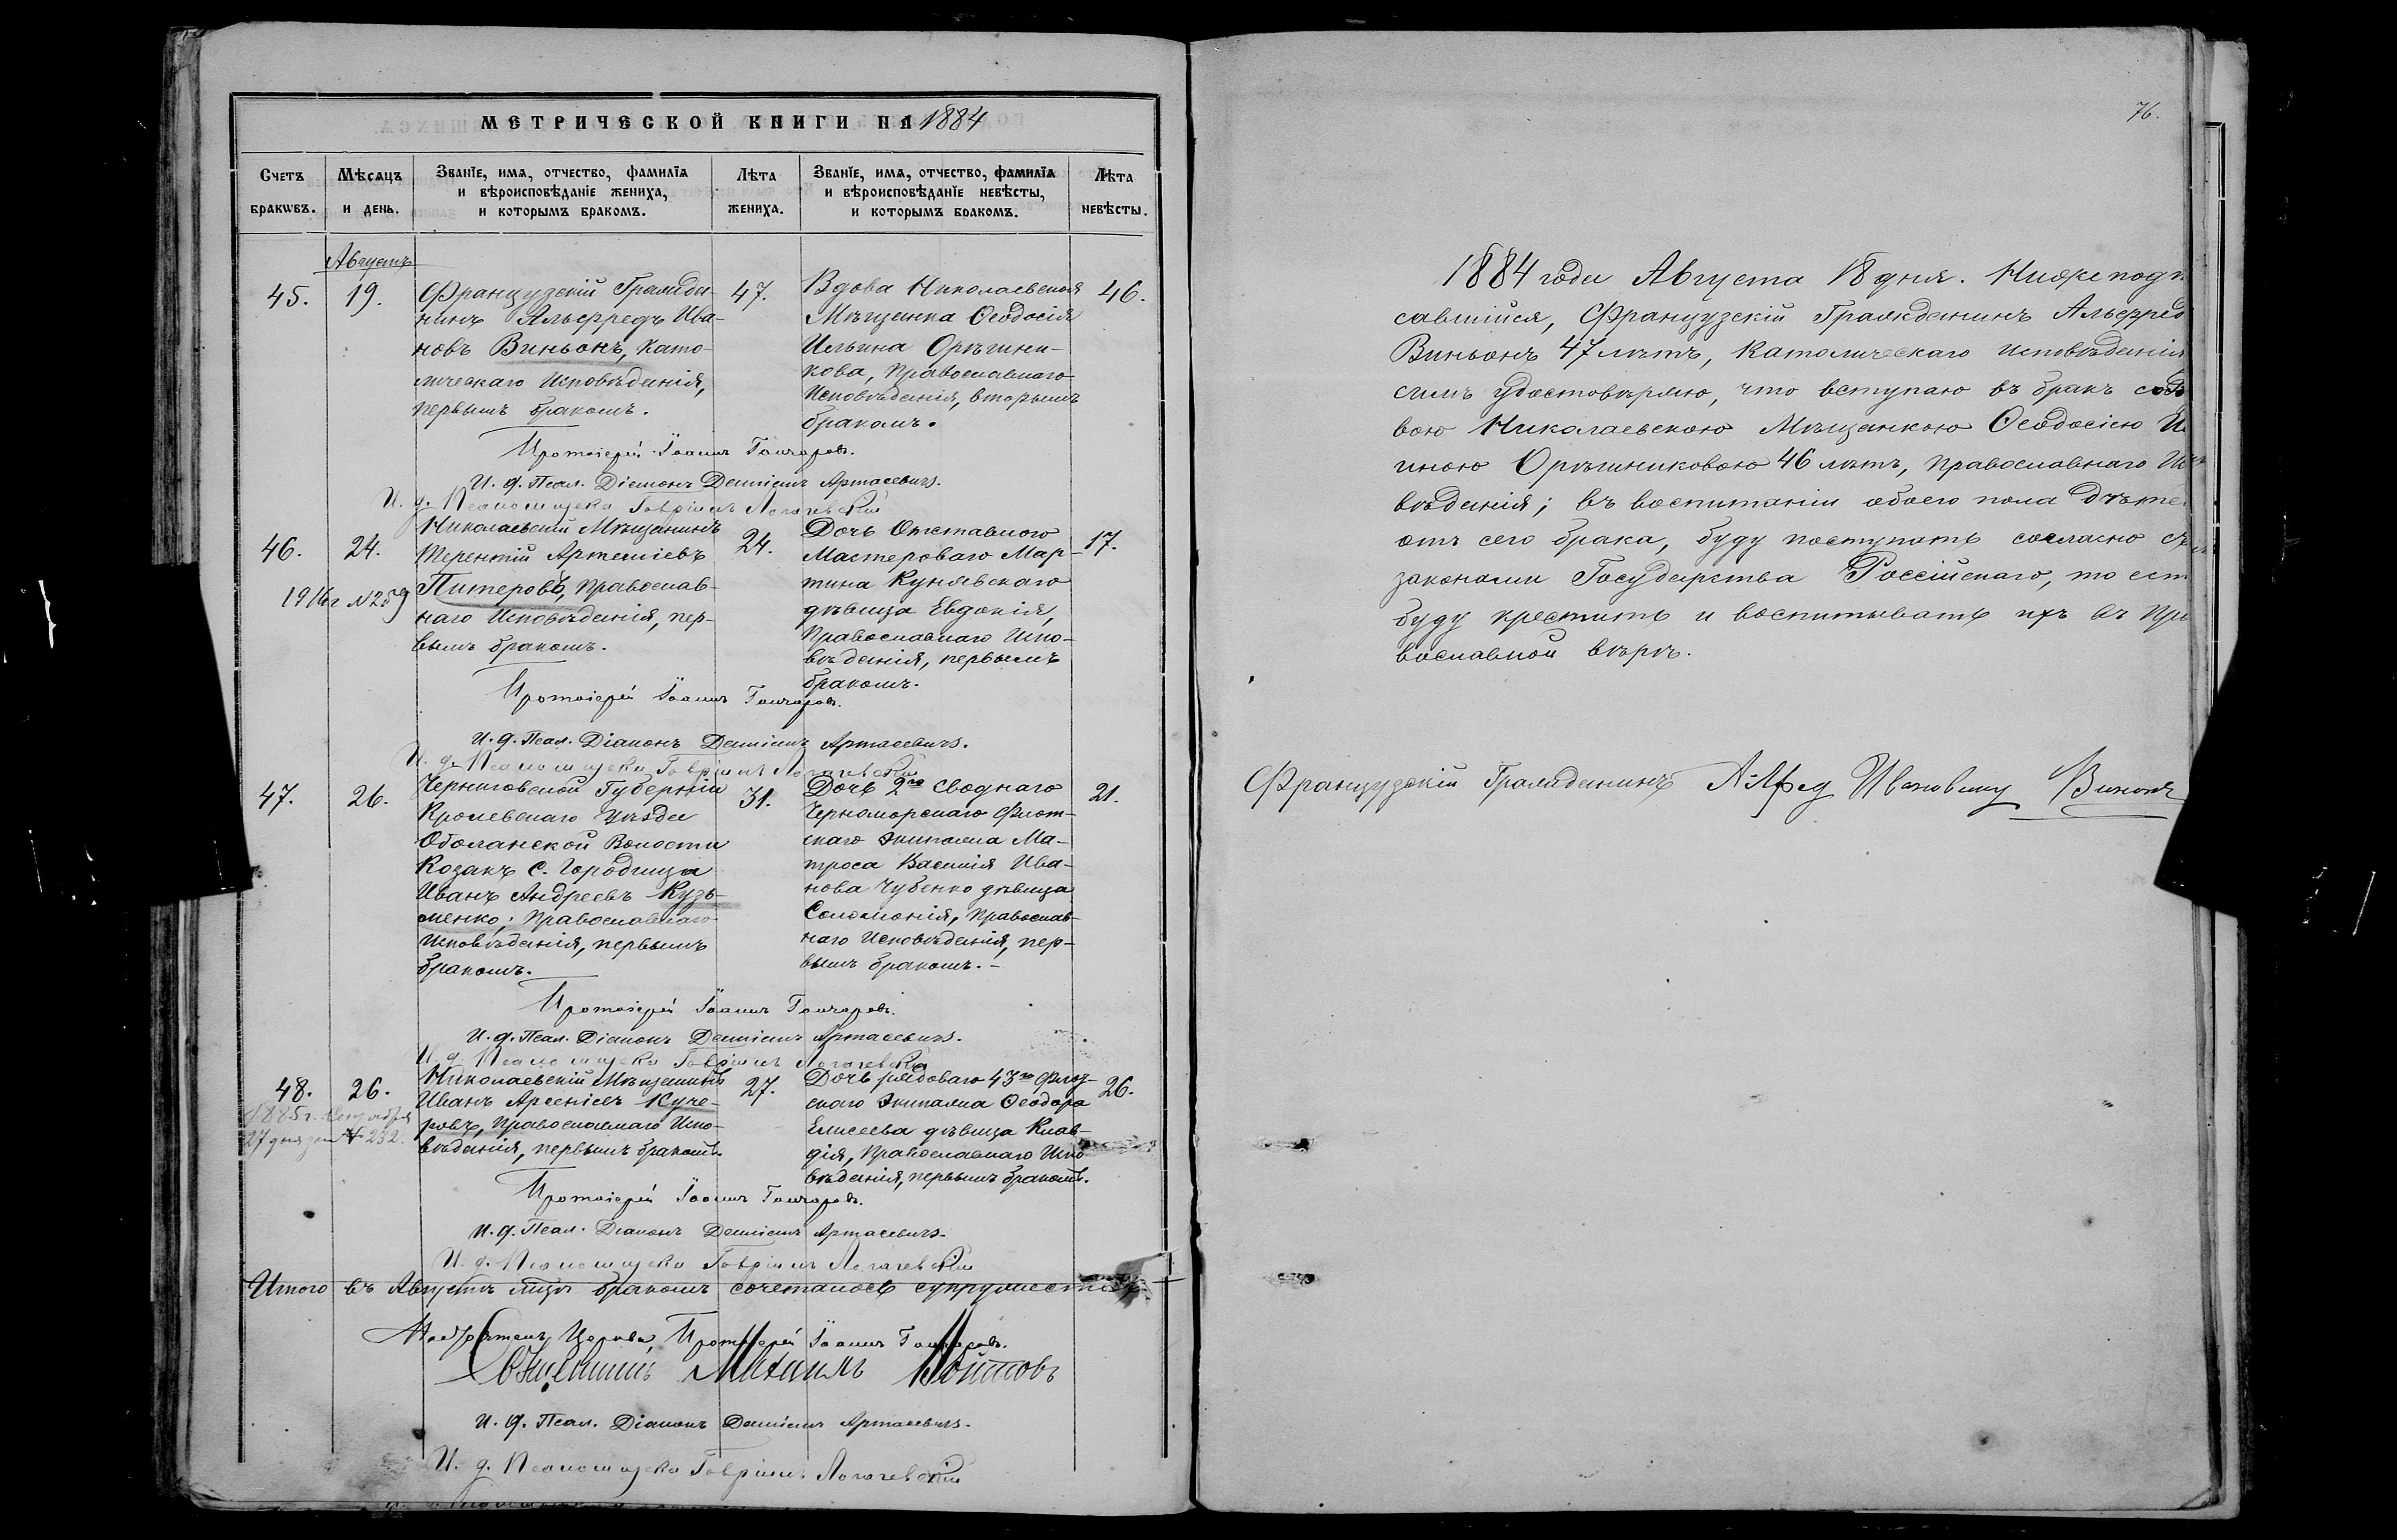 МЕТРИЧЕСКОЙ КНИГИ НА 1884
Счетъ браковъ.
Мѣсяцъ и день.
Званіе, имя, отчество, фамилія
и вѣроисповѣданіе жениха,
и которымъ бракомъ.
Лѣта жениха.
Званіе, имя, отчество, фамилія
и вѣроисповѣданіе невѣсты,
и которымъ бракомъ.
Лѣта невѣсты.
Августъ
45. 19.
Французскій Гражда-
нинъ Альфредъ Ива-
новъ Виньонъ, Като-
лическаго Исповѣданія,
первымъ бракомъ.
47.
Вдова Николаевская
Мѣщанка Ѳеодосія
Ильина Орѣшни-
кова, Православнаго
Исповѣданія, вторымъ
бракомъ.
46.
Протоіерей Іоаннъ Гончаровъ.
И. д. Псал. Діаконъ Даміанъ Артасевичъ.
И. д. Псаломщика Гавріилъ Логачевскій
46. 24.
1916 г №259
Николаевскій Мѣщанинъ
Терентій Артеміевъ
Питеровъ, Православ-
наго Исповѣданія, пер-
вымъ бракомъ.
24.
Дочь Отставного
Мастероваго Мар-
тина Кунявскаго
дѣвица Евдокія,
Православнаго Испо-
вѣданія, первымъ
бракомъ.
17.
Протоіерей Іоаннъ Гончаровъ.
И. д. Псал. Діаконъ Даміанъ Артасевичъ.
И. д. Псаломщика Гавріилъ Логачевскій
47. 26.
Черниговской Губерніи
Кролевскаго Уѣзда
Оболанской Волости
Козакъ с. Городища
Иванъ Андреевъ Кузь-
менко, Православнаго
Исповѣданія, первымъ
бракомъ.
31.
Дочь 2го своднаго
Черноморскаго Флот-
скаго Экипажа Ма-
троса Василія Ива-
нова Чубенко дѣвица
Соломонія, Православ-
наго Исповѣданія, пер-
вымъ бракомъ.-
21.
Протоіерей Іоаннъ Гончаровъ.
И. д. Псал. Діаконъ Даміанъ Артасевичъ.
И. д. Псаломщика Гавріилъ Логачевскій
48. 26.
1885 г.
27 дня №232.
Николаевскій Мѣщанинъ
Иванъ Арсеніевъ Куче-
ровъ, Православнаго Испо-
вѣданія, первымъ бракомъ
27.
Дочь рядоваго 43го Флот-
скаго Экипажа Ѳеодора
Елисеева дѣвица Клав-
дія, Православнаго Испо-
вѣданія, первымъ бракомъ.
26.
Протоіерей Іоаннъ Гончаровъ.
И. д. Псал. Діаконъ Даміанъ Артасевичъ.
И. д. Псаломщика Гавріилъ Логачевскій
Итого въ Августѣ мѣсяцѣ бракомъ сочеталось супружествъ
Церкви, Протоіерей Іоаннъ Гончаровъ.
Священникъ Михаилъ
И. д. Псал. Діаконъ Даміанъ Артасевичъ.
И. д. Псаломщика Гавріилъ Логачевскій
76.
1884 года Августа 18 дня. Нижеподп
савшійся, Французскій Гражданинъ Альфред
Виньонъ 47 лѣтъ, Католическаго исповѣданія
симъ удостовѣряю, что вступаю въ бракъ со вдо
вою Николаевскою Мѣщанкою Ѳеодосіею И
иною Орѣшниковою 46 лѣтъ, Православнаго Ис
вѣданія; въ воспитаніи обоего пола дѣте
отъ сего брака, буду поступать согласно съ
законами Государства Россійскаго, то ест
буду крестить и воспитывать ихъ въ Пра
вославной вѣрѣ.
Французскій Гражданинъ Алфед Ивановичъ Винонъ